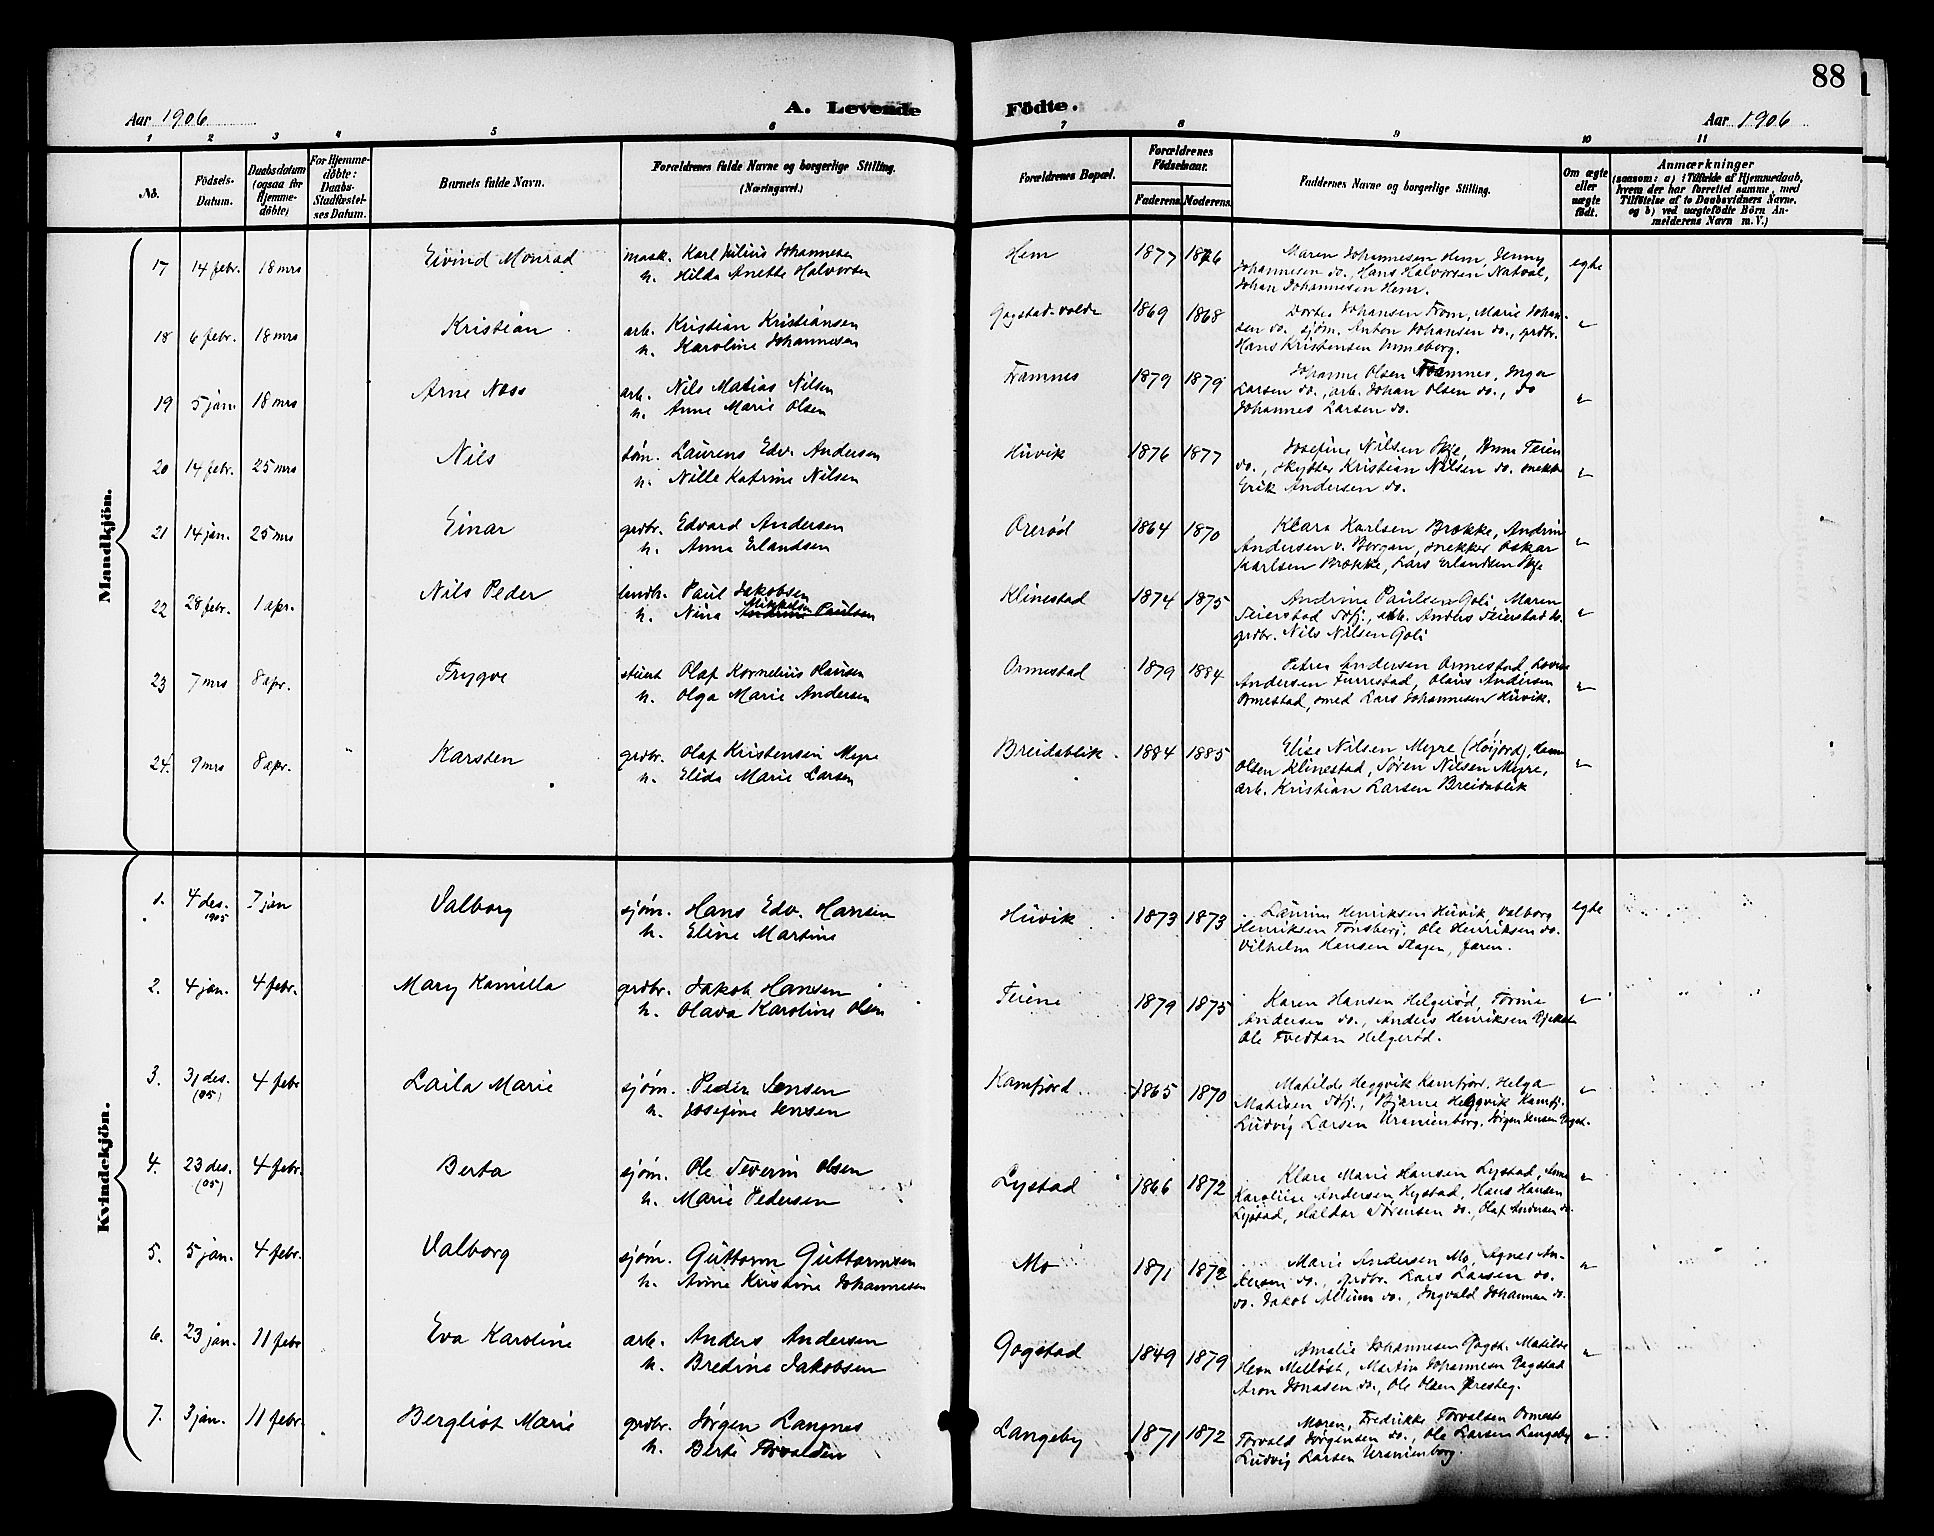 88
Aar 1906 A. Levende Födte. Aar 1906
1 2 3 4 5 6 7 8 9 10 11
No.
Födsels-
Datum.
Daabsdatum
(ogsaa for
Hjemme-
döbte)
For Hjemme-
döbte:
Daabs-
Stadfæstel-
ses Datum.
Barnets fulde Navn.
Forældrenes fulde Navne og borgerlige Stilling.
(Næringsvei.)
Forældrenes Bopæl.
Forældrenes
Födselsaar.
Faderens. Moderens.
Faddernes Navne og borgerlige Stilling.
Om ægte
eller
uægte
födt.
Anmærkninger
(saasom: a) i Tilfælde af Hjemmedaab,
hvem der har forrettet samme, med
Tilföielse af to Daabsvidners Navne,
og b) ved uægtefödte Börn An-
melderens Navn m. V.)
Mandkjön.
17 14 febr. 18 mrs Eivind Monrad
mask. Karl Julius Johannesen
h. Hilda Anette Halvorsen
Hem 1877 1876
Maren Johannesen Hem, Jenny
Johannesen do., Hans Halvorsen Natval,
Johan Johannesen Hem.
egte
18 6 febr. 18 mrs Kristian
arb. Kristian Kristiansen
h. Karoline Johannesen
Gogstad-valde 1869 1868
Dorte Johansen Fram, Marie Johan-
sen do., sjøm. Anton Johansen do., grdbr.
Hans Kristensen Unneberg.
"
19 5 jan. 18 mrs Arne Næss
arb. Nils Matias Nilsen
h. Anne Marie Olsen
Framnes 1879 1879
Johanne Olsen Framnes, Inga
Larsen do., arb. Johan Olsen do., do
Johannes Larsen do.
"
20 14 febr. 25 mrs Nils
tøm. Laurens Edv. Andersen
h. Nille Katrine Nilsen
Huvik 1876 1877
Josefine Nilsen Skje, Anne Feien
do., skytter Kristian Nilsen do. snekker
Erik Andersen do.
"
21 14 jan. 25 mrs Einar
grdbr. Edvard Andersen
h. Anna Erlandsen
Orerød 1864 1870
Klara Karlsen Brække, Andrine
Andersen v. Bergan, snekker Oskar
Karlsen Brække, Lars Erlandsen Skje
"
22 28 febr. 1 apr. Nils Peder
landh. Paul Jakobsen
Mikkelsen
h. Nina Andrine Paulsen
Klinestad 1874 1875
Andrine Paulsen Goli, Maren
Feierstad Sdfj., arb. Anders Feierstad do.
grdbr. Nils Nilsen Goli
"
23 7 mrs 8 apr. Trygve
Olaf Kornelius Hansen
h. Olga Marie Andersen
Ormestad 1879 1884
Petra Andersen Ormestad, Lovise
Andersen Furrestad, Olaus Andersen
Ormestad, smed Lars Johannesen Huvik.
"
24. 9 mrs 8 apr. Karsten
grdbr. Olaf Kristensen Myre
h. Elida Marie Larsen
Breidablik. 1884 1885
Elise Nilsen Myre (Høijord),
Olsen Klinestad, Søren Nilsen Myre,
arb. Kristian Larsen Breidablik
"
Kvindekjön.
1. 4 des. 7 jan Valborg
1905
sjøm. Hans Edv. Hansen
h. Eline Martine
Huvik 1873 1873
Laurine Henriksen Huvik, Valborg
Henriksen Tønsberg, Ole Henriksen do.
Vilhelm Hansen Slagen, faren.
egte
2. 4 jan. 4 febr. Mary Kamilla
grdbr. Jakob Hansen
h. Olava Karoline Olsen
Feiene 1879 1875
Karen Hansen Helgerød, Torine
Andersen do., Anders Henriksen Gjekstad
Ole Tvedtan Helgerød.
"
3. 31 des. 4 febr Laila Marie
(05)
sjøm. Peder Jensen
h. Josefine Jensen
Kamfjord 1865 1870
Matilde Heggvik Kamfjord, Helga
Matisen Sdfj., Bjarne Heggvik Kamfj.
Ludvig Larsen Uranienborg, Jørgen Jensen Gogst.
"
4. 23 des. 4 febr. Berta
(05)
sjøm. Ole Severin Olsen
h. Marie Pedersen
Lystad 1866 1872
Klara Marie Hansen Lystad, Anne
Karoline Andersen Hystad, Hans Hansen
Lystad, Haldor Sørensen do., Olaf Andersen do.
"
5. 5 jan. 4 febr. Valborg
sjøm. Guttorm Guttormsen
h. Anne Kristine Johannesen
Mo 1871 1872
Marie Andersen Mo, Agnes An-
dersen do., grdbr. Lars Larsen do.
do. Jakob Allum do., Ingvald Johannesen do.
"
6. 23 jan. 11 febr Eva Karoline
arb. Anders Andersen
h. Bredine Jakobsen
Gogstad 1849 1879
Amalie Johannesen Gogst. Matilde
Hem Melløst, Martin Johannesen Gogstad
Aron Jonasen do., Ole Olsen Presteg.
"
7. 3 jan. 11 febr. Bergliot Marie
grdbr. Jørgen Langnes
h. Berte Torvaldsen
Langeby 1871 1872
Moren, Fredrikke Torvalsen Ormestad
Torvald Jørgensen do., Ole Larsen Langeby
Ludvig Larsen Uranienborg.
"